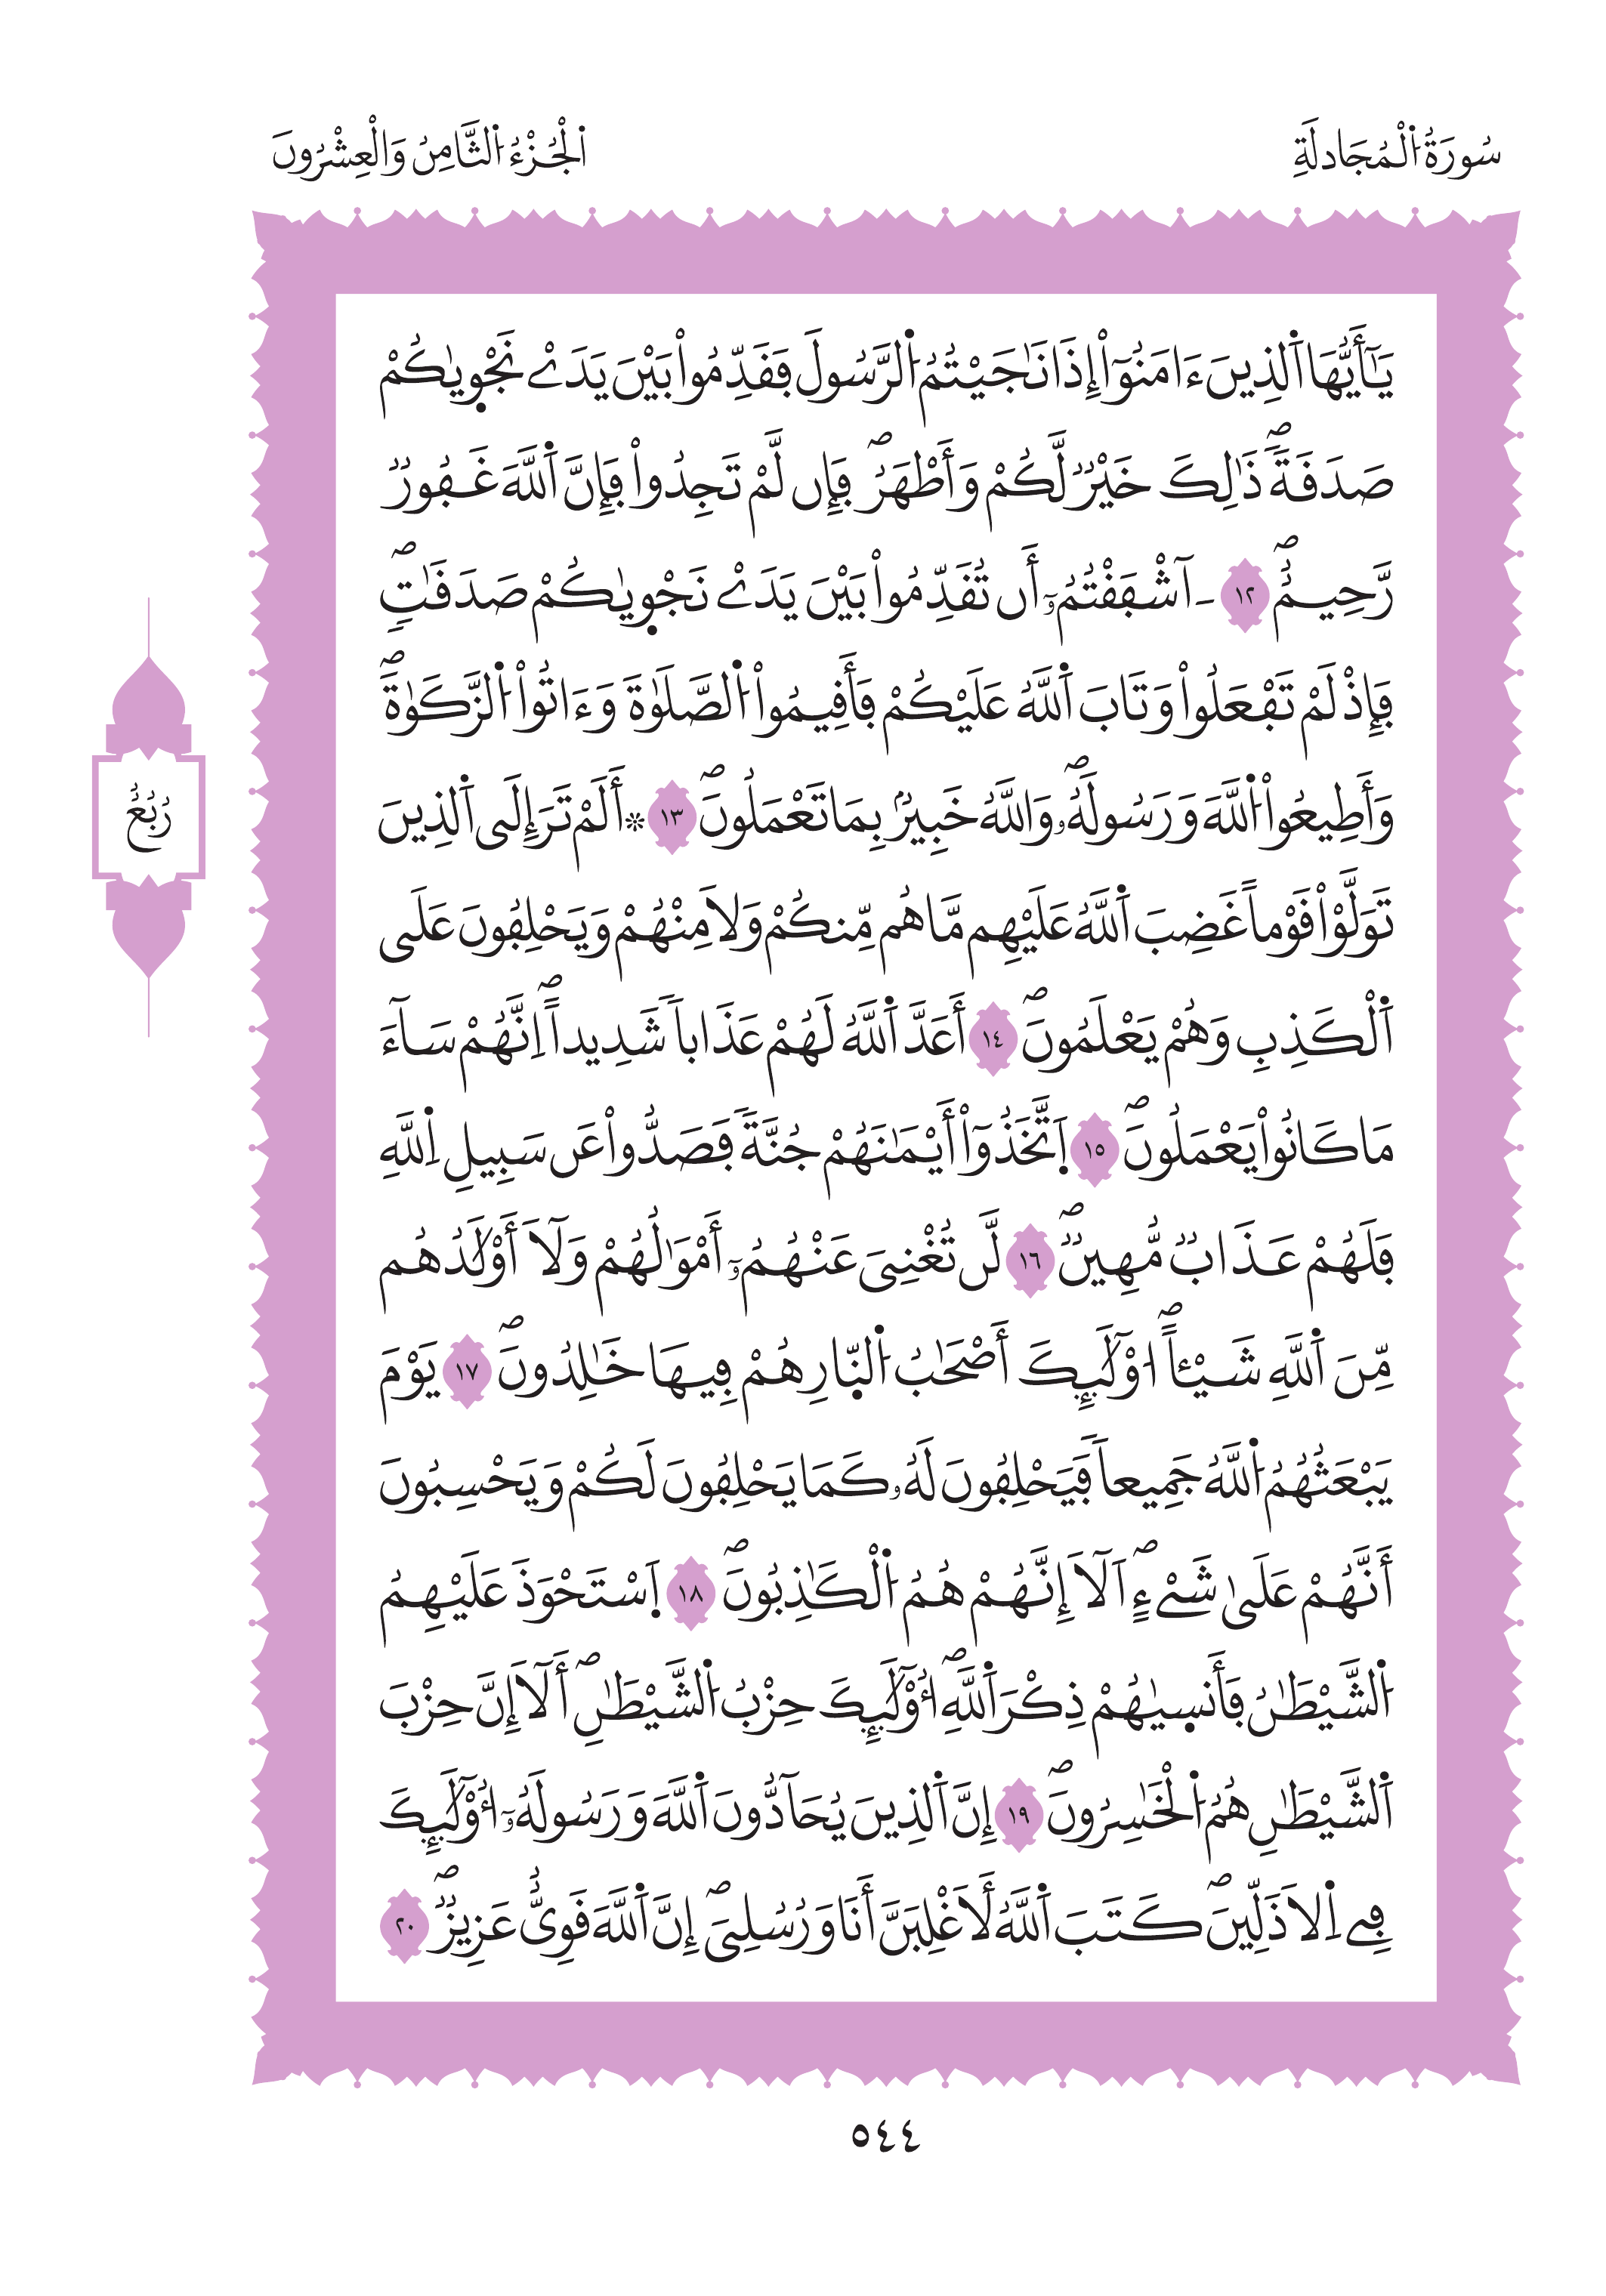 سُورَةُ اُ۬لْمُجَادلَةِ
اَ۬لْجُزْءُ اُ۬لثَّامِنُ وَالْعِشْرُونَ
يَٰٓأَيُّهَا اَ۬لذِينَ ءَامَنُوٓاْ إِذَا نَٰجَيْتُمُ اُ۬لرَّسُولَ فَقَدِّمُواْ بَيْنَ يَدَےْ نَجْو۪يٰكُمْ
صَدَقَةٗۖ ذَٰلِكَ خَيْرٞ لَّكُمْ وَأَطْهَرُۖ فَإِن لَّمْ تَجِدُواْ فَإِنَّ اَ۬للَّهَ غَفُورٞ
رَّحِيمٌۖ ١٢ ـآشْفَقْتُمُۥٓ أَن تُقَدِّمُواْ بَيْنَ يَدَےْ نَجْو۪يٰكُمْ صَدَقَٰتٖۖ
فَإِذْ لَمْ تَفْعَلُواْ وَتَابَ اَ۬للَّهُ عَلَيْكُمْ فَأَقِيمُواْ اُ۬لصَّلَوٰةَ وَءَاتُواْ اُ۬لزَّكَوٰةَۖ
وَأَطِيعُواْ اُ۬للَّهَ وَرَسُولَهُۥۖ وَاللَّهُ خَبِيرُۢ بِمَا تَعْمَلُونَۖ ١٣ ۞أَلَمْ تَرَ إِلَى اَ۬لذِينَ
تَوَلَّوْاْ قَوْماً غَضِبَ اَ۬للَّهُ عَلَيْهِم مَّا هُم مِّنكُمْ وَلَا مِنْهُمْ وَيَحْلِفُونَ عَلَى
اَ۬لْكَذِبِ وَهُمْ يَعْلَمُونَۖ ١٤ أَعَدَّ اَ۬للَّهُ لَهُمْ عَذَاباٗ شَدِيداًۖ اِنَّهُمْ سَآءَ
مَا كَانُواْ يَعْمَلُونَۖ ١٥ اَ۪تَّخَذُوٓاْ أَيْمَٰنَهُمْ جُنَّةٗ فَصَدُّواْ عَن سَبِيلِ اِ۬للَّهِ
فَلَهُمْ عَذَابٞ مُّهِينٞۖ ١٦ لَّن تُغْنِيَ عَنْهُمُۥٓ أَمْوَٰلُهُمْ وَلَآ أَوْلَٰدُهُم
مِّنَ اَ۬للَّهِ شَيْـٔاًۖ ا۟وْلَٰٓئِكَ أَصْحَٰبُ اُ۬لنّ۪ارِ هُمْ فِيهَا خَٰلِدُونَۖ ١٧ يَوْمَ
يَبْعَثُهُمُ اُ۬للَّهُ جَمِيعاٗ فَيَحْلِفُونَ لَهُۥ كَمَا يَحْلِفُونَ لَكُمْ وَيَحْسِبُونَ
أَنَّهُمْ عَلَىٰ شَےْءٍۖ اَلَآ إِنَّهُمْ هُمُ اُ۬لْكَٰذِبُونَۖ ١٨ اَ۪سْتَحْوَذَ عَلَيْهِمُ
اُ۬لشَّيْطَٰنُ فَأَنس۪يٰهُمْ ذِكْرَ اَ۬للَّهِۖ أُوْلَٰٓئِكَ حِزْبُ اُ۬لشَّيْطَٰنِۖ أَلَآ إِنَّ حِزْبَ
اَ۬لشَّيْطَٰنِ هُمُ اُ۬لْخَٰسِرُونَۖ ١٩ إِنَّ اَ۬لذِينَ يُحَآدُّونَ اَ۬للَّهَ وَرَسُولَهُۥٓ أُوْلَٰٓئِكَ
فِے اِ۬لَاذَلِّينَۖ كَتَبَ اَ۬للَّهُ لَأَغْلِبَنَّ أَنَا وَرُسُلِيَۖ إِنَّ اَ۬للَّهَ قَوِيٌّ عَزِيزٞۖ ٢٠
رُبُعُ
٥٤٤